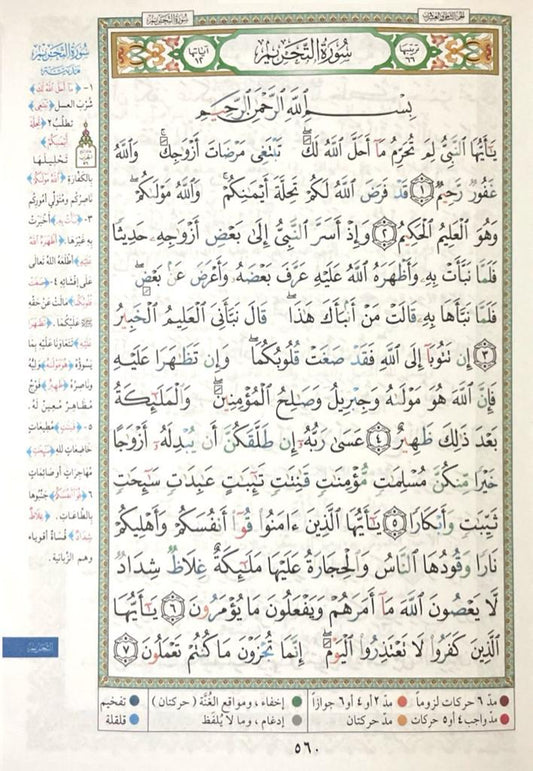 الجزء الثامن والعشرون
سُورَةُ التَّحْرِيمِ
ترتيبها ٦٦
سُورَةُ التَّحْرِيمِ
آياتها ١٢
بِسْمِ اللَّهِ الرَّحْمَٰنِ الرَّحِيمِ
يَٰٓأَيُّهَا ٱلنَّبِىُّ لِمَ تُحَرِّمُ مَآ أَحَلَّ ٱللَّهُ لَكَ ۖ تَبْتَغِى مَرْضَاتَ أَزْوَٰجِكَ ۚ وَٱللَّهُ
غَفُورٌ رَّحِيمٌ ١ قَدْ فَرَضَ ٱللَّهُ لَكُمْ تَحِلَّةَ أَيْمَٰنِكُمْ ۚ وَٱللَّهُ مَوْلَىٰكُمْ ۖ
وَهُوَ ٱلْعَلِيمُ ٱلْحَكِيمُ ٢ وَإِذْ أَسَرَّ ٱلنَّبِىُّ إِلَىٰ بَعْضِ أَزْوَٰجِهِۦ حَدِيثًا
فَلَمَّا نَبَّأَتْ بِهِۦ وَأَظْهَرَهُ ٱللَّهُ عَلَيْهِ عَرَّفَ بَعْضَهُۥ وَأَعْرَضَ عَنۢ بَعْضٍ ۖ
فَلَمَّا نَبَّأَهَا بِهِۦ قَالَتْ مَنْ أَنۢبَأَكَ هَٰذَا ۖ قَالَ نَبَّأَنِىَ ٱلْعَلِيمُ ٱلْخَبِيرُ
٣ إِن تَتُوبَآ إِلَى ٱللَّهِ فَقَدْ صَغَتْ قُلُوبُكُمَا ۖ وَإِن تَظَٰهَرَا عَلَيْهِ
فَإِنَّ ٱللَّهَ هُوَ مَوْلَىٰهُ وَجِبْرِيلُ وَصَٰلِحُ ٱلْمُؤْمِنِينَ ۖ وَٱلْمَلَٰٓئِكَةُ
بَعْدَ ذَٰلِكَ ظَهِيرٌ ٤ عَسَىٰ رَبُّهُۥٓ إِن طَلَّقَكُنَّ أَن يُبْدِلَهُۥٓ أَزْوَٰجًا
خَيْرًا مِّنكُنَّ مُسْلِمَٰتٍ مُّؤْمِنَٰتٍ قَٰنِتَٰتٍ تَٰٓئِبَٰتٍ عَٰبِدَٰتٍ سَٰٓئِحَٰتٍ
ثَيِّبَٰتٍ وَأَبْكَارًا ٥ يَٰٓأَيُّهَا ٱلَّذِينَ ءَامَنُوا۟ قُوٓا۟ أَنفُسَكُمْ وَأَهْلِيكُمْ
نَارًا وَقُودُهَا ٱلنَّاسُ وَٱلْحِجَارَةُ عَلَيْهَا مَلَٰٓئِكَةٌ غِلَاظٌ شِدَادٌ
لَّا يَعْصُونَ ٱللَّهَ مَآ أَمَرَهُمْ وَيَفْعَلُونَ مَا يُؤْمَرُونَ ٦ يَٰٓأَيُّهَا
ٱلَّذِينَ كَفَرُوا۟ لَا تَعْتَذِرُوا۟ ٱلْيَوْمَ ۖ إِنَّمَا تُجْزَوْنَ مَا كُنتُمْ تَعْمَلُونَ ٧
سُورَةُ التَّحْرِيمِ
مدنية
١- ﴿مَآ أَحَلَّ ٱللَّهُ لَكَ﴾
شُرْبَ العسل ﴿تَبْتَغِى﴾
تطلُبُ ٢ ﴿تَحِلَّةَ
أَيْمَٰنِكُمْ﴾
تَحْليلَها
بالكفّارة ﴿ٱللَّهُ مَوْلَىٰكُمْ﴾
ناصِرُكم ومُتَوَلّي أمورِكم
٣- ﴿نَبَّأَتْ بِهِۦ﴾ أخْبَرَتْ
بِهِ غَيْرَها ﴿أَظْهَرَهُ ٱللَّهُ
عَلَيْهِ﴾ أطْلَعَهُ اللهُ تعالى
على إفْشائِهِ ٤ ﴿صَغَتْ
قُلُوبُكُمَا﴾ مالَتْ عَنْ حَقِّهِ
ﷺ عَلَيْكُما ﴿تَظَٰهَرَا
عَلَيْهِ﴾ تَتَعاوَنا عَلَيْهِ بِما
يَسُوؤُهُ ﴿هُوَ مَوْلَىٰهُ﴾ وَلِيُّهُ
وناصِرُهُ ﴿ظَهِيرٌ﴾ فَوْجٌ
مُظاهِرٌ مُعينٌ لَهُ
٥- ﴿قَٰنِتَٰتٍ﴾ مُطيعاتٍ
خاضِعاتٍ للهِ ﴿سَٰٓئِحَٰتٍ﴾
مُهاجِراتٍ أو صائِماتٍ
٦ ﴿قُوٓا۟ أَنفُسَكُمْ﴾ جَنِّبُوها
بالطّاعاتِ ﴿غِلَاظٌ
شِدَادٌ﴾ قُساةٌ أقوياء
وهم الزّبانية .
التَّحْرِيم
مدّ ٦ حركات لزوماً
مدّ ٢ أو ٤ أو ٦ جوازاً
إخفاء ، ومواقع الغُنَّة (حركتان)
تفخيم
مدّ واجب ٤ أو ٥ حركات
مدّ حركتان
إدغام ، وما لا يُلفَظ
قلقلة
٥٦٠